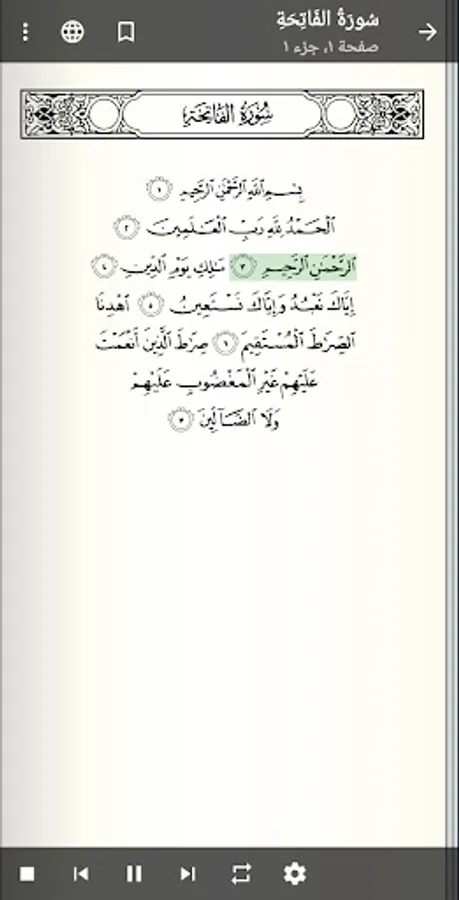 سُورَةُ الفَاتِحَةِ
صفحة ١، جزء ١
سُورَةُ الْفَاتِحَةِ
بِسْمِ ٱللَّهِ ٱلرَّحْمَٰنِ ٱلرَّحِيمِ ١
ٱلْحَمْدُ لِلَّهِ رَبِّ ٱلْعَٰلَمِينَ ٢
ٱلرَّحْمَٰنِ ٱلرَّحِيمِ ٣ مَٰلِكِ يَوْمِ ٱلدِّينِ ٤
إِيَّاكَ نَعْبُدُ وَإِيَّاكَ نَسْتَعِينُ ٥ ٱهْدِنَا
ٱلصِّرَٰطَ ٱلْمُسْتَقِيمَ ٦ صِرَٰطَ ٱلَّذِينَ أَنْعَمْتَ
عَلَيْهِمْ غَيْرِ ٱلْمَغْضُوبِ عَلَيْهِمْ
وَلَا ٱلضَّآلِّينَ ٧